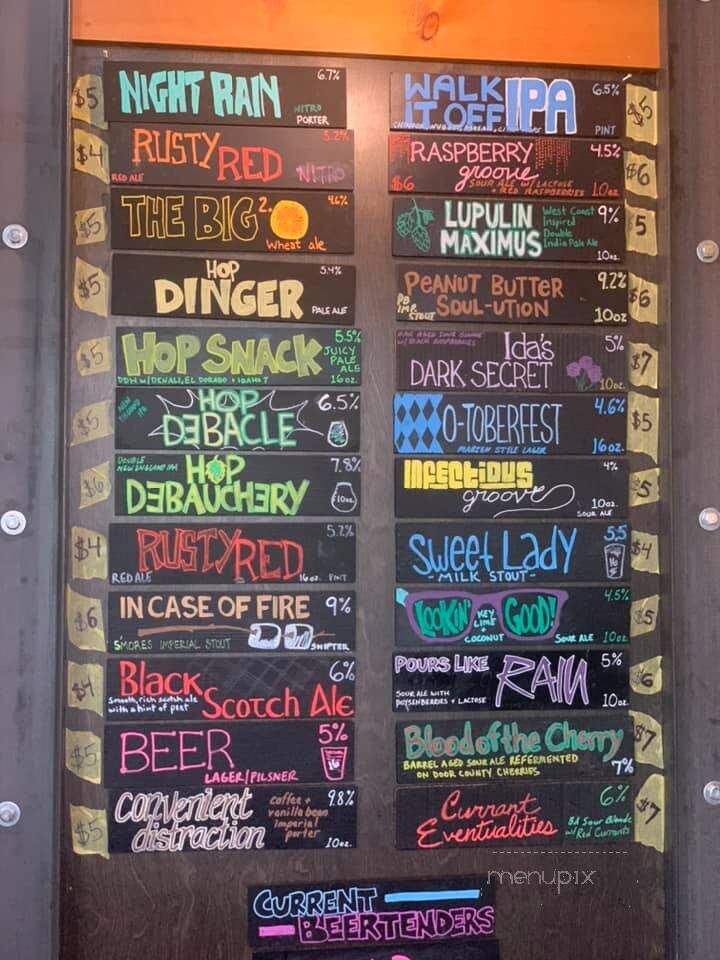 $5 NIGHT RAIN 6.7%
NITRO
PORTER
$4 RUSTY RED 5.2%
RED ALE NITRO
$5 THE BIG 2. 4.6%
Wheat ale
$5 HOP DINGER 5.4%
PALE ALE
$5 HOP SNACK 5.5%
JUICY
PALE
ALE
DDH W/DENALI, EL DORADO + IDAHO 7 16oz.
$5 HOP DEBACLE 6.5%
NEW
IPA
$6 DOUBLE
NEW ENGLAND IPA
HOP DEBAUCHERY 7.8%
10oz.
$4 RUSTY RED 5.2%
RED ALE 16oz. PINT
$6 IN CASE OF FIRE 9%
S'MORES IMPERIAL STOUT SNIFTER
$4 Black Scotch Ale 6%
Smooth, rich scotch ale
with a hint of peat
$5 BEER 5%
LAGER/PILSNER 16
$5 Convenient distraction 9.8%
coffee +
vanilla bean
imperial
porter
10oz.
WALK IT OFF IPA 6.5% $5
PINT
RASPBERRY groove 4.5% $6
$6 SOUR ALE W/ LACTOSE
+ RED RASPBERRIES 10oz
LUPULIN MAXIMUS 9% 5
West Coast
Inspired
Double
India Pale Ale
10oz.
PEANUT BUTTER SOUL-UTION 9.2% $6
PB
IMP.
STOUT
10oz
Ida's DARK SECRET 5% $7
W/ BLACK RASPBERRIES
10oz.
O-TOBERFEST 4.6% $5
MARZEN STYLE LAGER 16oz.
INFECTIOUS groove 4% $5
10oz.
SOUR ALE
Sweet Lady 5.5 $4
-MILK STOUT- 16
LOOKIN' GOOD! 4.5% $5
KEY
LIME
+
COCONUT SOUR ALE 10oz
POURS LIKE RAIN 5% $6
SOUR ALE WITH
BOYSENBERRIES + LACTOSE 10oz.
Blood of the Cherry $7
BARREL AGED SOUR ALE REFERMENTED
ON DOOR COUNTY CHERRIES 7%
Currant Eventualities 6% $7
BA Sour Blonde
w/ Red Currants
menupix
CURRENT
BEERTENDERS